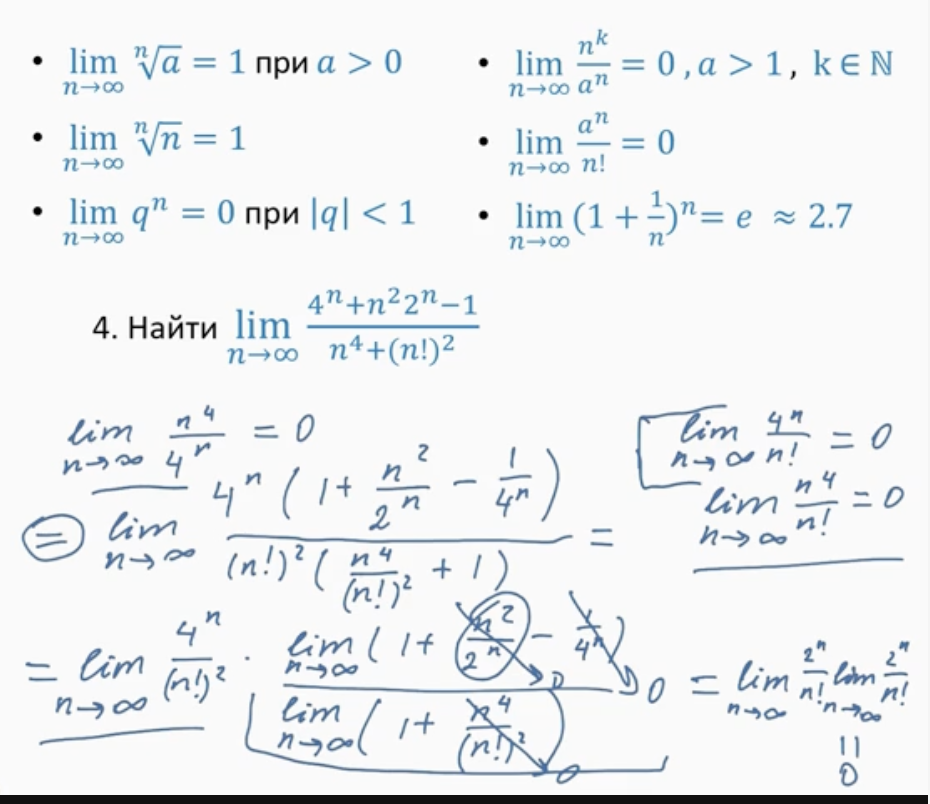 • lim_{n→∞} ⁿ√a = 1 при a > 0
• lim_{n→∞} n^k/a^n = 0 , a > 1 , k ∈ ℕ
• lim_{n→∞} ⁿ√n = 1
• lim_{n→∞} a^n/n! = 0
• lim_{n→∞} q^n = 0 при |q| < 1
• lim_{n→∞} (1 + 1/n)^n = e ≈ 2.7
4. Найти lim_{n→∞} (4^n+n^2 2^n−1)/(n^4+(n!)^2)
lim_{n→∞} n^4/4^n = 0
lim_{n→∞} 4^n/n! = 0
lim_{n→∞} n^4/n! = 0
= lim_{n→∞} 4^n (1 + n^2/2^n − 1/4^n) / ((n!)^2 (n^4/(n!)^2 + 1)) =
= lim_{n→∞} 4^n/(n!)^2 · lim_{n→∞} (1 + n^2/2^n − 1/4^n) / lim_{n→∞} (1 + n^4/(n!)^2) = lim_{n→∞} 2^n/n! lim_{n→∞} 2^n/n!
0 0 0
||
0